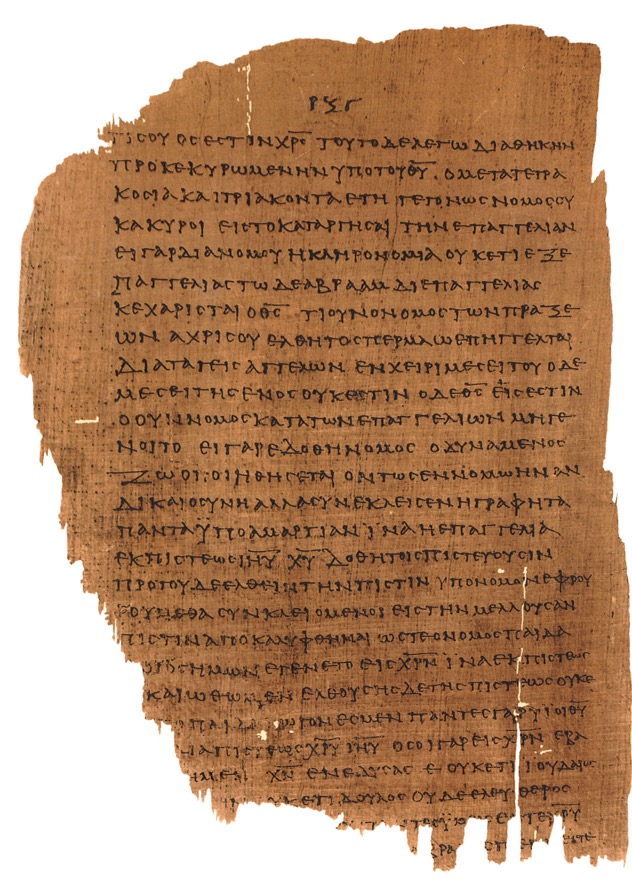 ΡΞΓ
ΤΙϹΟΥ ΟϹ ΕϹΤΙΝ ΧΡ̅Ϲ̅ ΤΟΥΤΟ ΔΕ ΛΕΓΩ ΔΙΑΘΗΚΗΝ
ΠΡΟΚΕΚΥΡΩΜΕΝΗΝ ΥΠΟ ΤΟΥ Θ̅Υ̅ · Ο ΜΕΤΑ ΤΕΤΡΑ
ΚΟϹΙΑ ΚΑΙ ΤΡΙΑΚΟΝΤΑ ΕΤΗ ΓΕΓΟΝΩϹ ΝΟΜΟϹ ΟΥ
Κ ΑΚΥΡΟΙ ΕΙϹ ΤΟ ΚΑΤΑΡΓΗϹΑΙ ΤΗΝ ΕΠΑΓΓΕΛΙΑΝ
ΕΙ ΓΑΡ ΔΙΑ ΝΟΜΟΥ Η ΚΛΗΡΟΝΟΜΙΑ ΟΥΚΕΤΙ ΕΞ Ε
ΠΑΓΓΕΛΙΑϹ ΤΩ ΔΕ ΑΒΡΑΑΜ ΔΙ ΕΠΑΓΓΕΛΙΑϹ
ΚΕΧΑΡΙϹΤΑΙ Ο Θ̅Ϲ̅ ΤΙ ΟΥΝ Ο ΝΟΜΟϹ ΤΩΝ ΠΡΑΞΕ
ΩΝ ΑΧΡΙϹ ΟΥ ΕΛΘΗ ΤΟ ϹΠΕΡΜΑ Ω ΕΠΗΓΓΕΛΤΑΙ
ΔΙΑΤΑΓΕΙϹ ΑΓΓΕΛΩΝ ΕΝ ΧΕΙΡΙ ΜΕϹΕΙΤΟΥ Ο ΔΕ
ΜΕϹΕΙΤΗϹ ΕΝΟϹ ΟΥΚ ΕϹΤΙΝ Ο ΔΕ Θ̅Ϲ̅ ΕΙϹ ΕϹΤΙΝ
Ο ΟΥΝ ΝΟΜΟϹ ΚΑΤΑ ΤΩΝ ΕΠΑΓΓΕΛΙΩΝ ΜΗ ΓΕ
ΝΟΙΤΟ ΕΙ ΓΑΡ ΕΔΟΘΗ ΝΟΜΟϹ Ο ΔΥΝΑΜΕΝΟϹ
ΟΝΤΩϹ ΕΝ ΝΟΜΩ ΗΝ ΑΝ
ΔΙΚΑΙΟϹΥΝΗ ΑΛΛΑ ϹΥΝΕΚΛΕΙϹΕΝ Η ΓΡΑΦΗ ΤΑ
ΠΑΝΤΑ ΫΠΟ ΑΜΑΡΤΙΑΝ ΪΝΑ Η ΕΠΑΓΓΕΛΙΑ
ΕΚ ΠΙϹΤΕΩϹ Ι̅Η̅Υ̅ Χ̅Υ̅ ΔΟΘΗ ΤΟΙϹ ΠΙϹΤΕΥΟΥϹΙΝ
ΠΡΟ ΤΟΥ ΔΕ ΕΛΘΕΙΝ ΤΗΝ ΠΙϹΤΙΝ ΥΠΟ ΝΟΜΟΝ ΕΦΡΟΥ
ΡΟΥΜΕΘΑ ϹΥΝΚΛΕΙΟΜΕΝΟΙ ΕΙϹ ΤΗΝ ΜΕΛΛΟΥϹΑΝ
ΠΙϹΤΙΝ ΑΠΟΚΑΛΥΦΘΗΝΑΙ ΩϹΤΕ Ο ΝΟΜΟϹ ΠΑΙΔΑ
ΓΩΓΟϹ ΗΜΩΝ ΕΓΕΝΕΤΟ ΕΙϹ Χ̅Ρ̅Ν̅ ΪΝΑ ΕΚ ΠΙϹΤΕΩϹ
ΔΙΚΑΙΩΘΩΜΕΝ ΕΛΘΟΥϹΗϹ ΔΕ ΤΗϹ ΠΙϹΤΕΩϹ ΟΥΚΕ
ΤΙ ΥΠΟ ΠΑΙΔΑΓΩΓΟΝ ΕϹΜΕΝ ΠΑΝΤΕϹ ΓΑΡ ΥΙΟΙ Θ̅Υ̅
ΔΙΑ ΠΙϹΤΕΩϹ Χ̅Ρ̅Υ̅ Ι̅Η̅Υ̅ ΟϹΟΙ ΓΑΡ ΕΙϹ Χ̅Ρ̅Ν̅ ΕΒΑ
Χ̅Ν̅ ΕΝΕΔΥϹΑϹΘΕ ΟΥΚΕΤΙ ΙΟΥΔΑΙΟϹ
ΔΟΥΛΟϹ ΟΥΔΕ ΕΛΕΥΘΕΡΟϹ